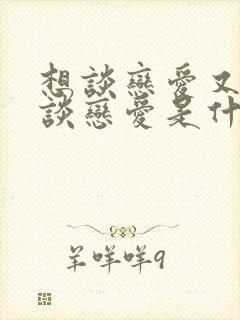 想談戀愛又
談戀愛是什
羊咩咩9